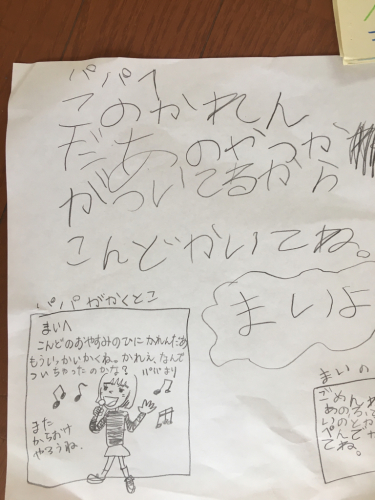 パパへ
このかれん
だあのやつが
がついてるから
こんどかいてね。
まいよ
パパがかくとこ
まいへ
こんどのおやすみのひに かれんだあ
もういっかいかくね。かれえ、なんで
ついちゃったのかな？
パパより
また
からおけ
やろうね。
まいの
ごめんね
てね。